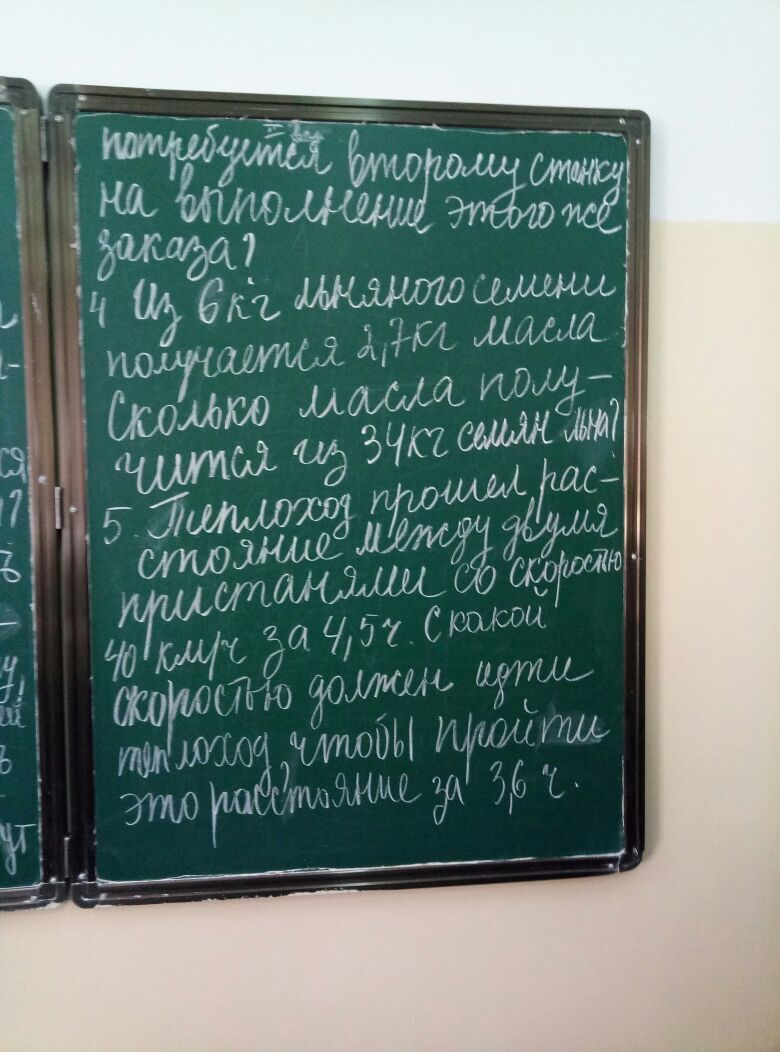 потребуется второму станку
на выполнение этого же
заказа?
4 Из 6кг льняного семени
получается 2,7кг масла
Сколько масла полу-
чится из 34кг семян льна?
5. Теплоход прошел рас-
стояние между двумя
пристанями со скоростью
40 км/ч за 4,5ч. С какой
скоростью должен идти
теплоход чтобы пройти
это расстояние за 3,6 ч.